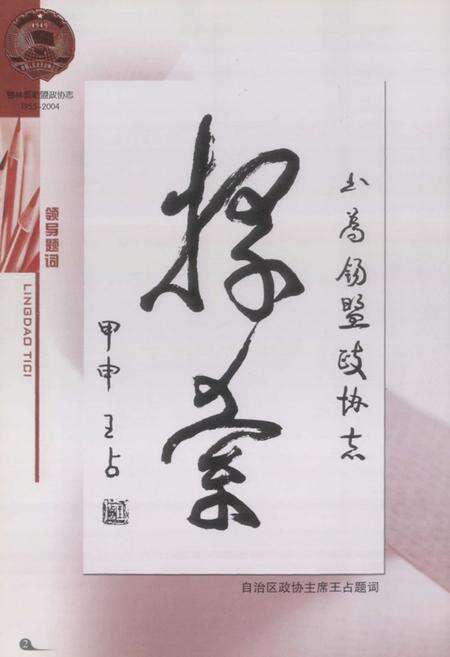 1949
锡林郭勒盟政协志
1955-2004
领导题词
LINGDAO TICI
书为锡盟政协志
甲申 王占
自治区政协主席王占题词
2